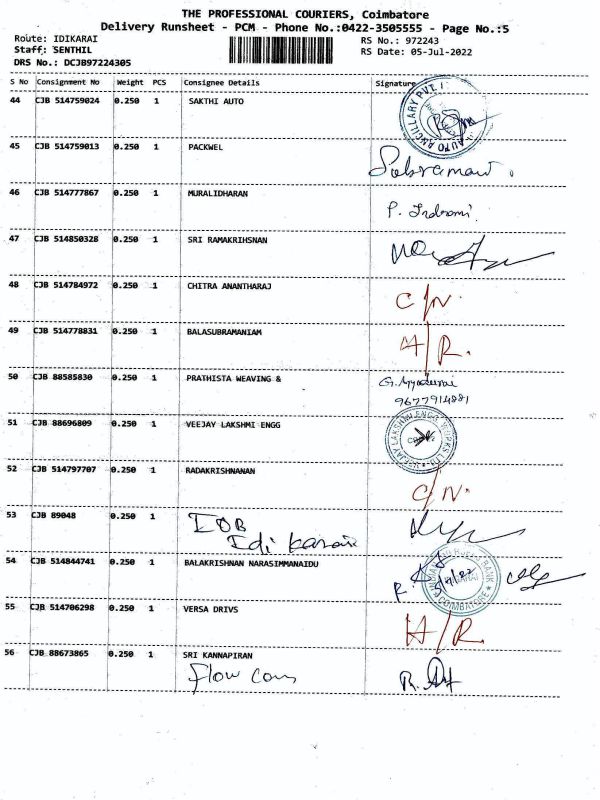 THE PROFESSIONAL COURIERS, Coimbatore
Delivery Runsheet - PCM - Phone No.:0422-3505555 - Page No.:5
Route: IDIKARAI RS No.: 972243
Staff: SENTHIL RS Date: 05-Jul-2022
DRS No.: DCJB97224305
S No Consignment No Weight PCS Consignee Details Signature
44 CJB 514759024 0.250 1 SAKTHI AUTO
45 CJB 514759013 0.250 1 PACKWEL
46 CJB 514777867 0.250 1 MURALIDHARAN
47 CJB 514850328 0.250 1 SRI RAMAKRIHSNAN
48 CJB 514784972 0.250 1 CHITRA ANANTHARAJ C/N.
49 CJB 514778831 0.250 1 BALASUBRAMANIAM H/R.
50 CJB 88585830 0.250 1 PRATHISTA WEAVING &
9677914881
51 CJB 88696809 0.250 1 VEEJAY LAKSHMI ENGG
52 CJB 514797707 0.250 1 RADAKRISHNANAN C/N.
53 CJB 89048 0.250 1 IOB
Idi karai
54 CJB 514844741 0.250 1 BALAKRISHNAN NARASIMMANAIDU
COIMBATORE
55 CJB 514706298 0.250 1 VERSA DRIVS H/R.
56 CJB 88673865 0.250 1 SRI KANNAPIRAN
Flow